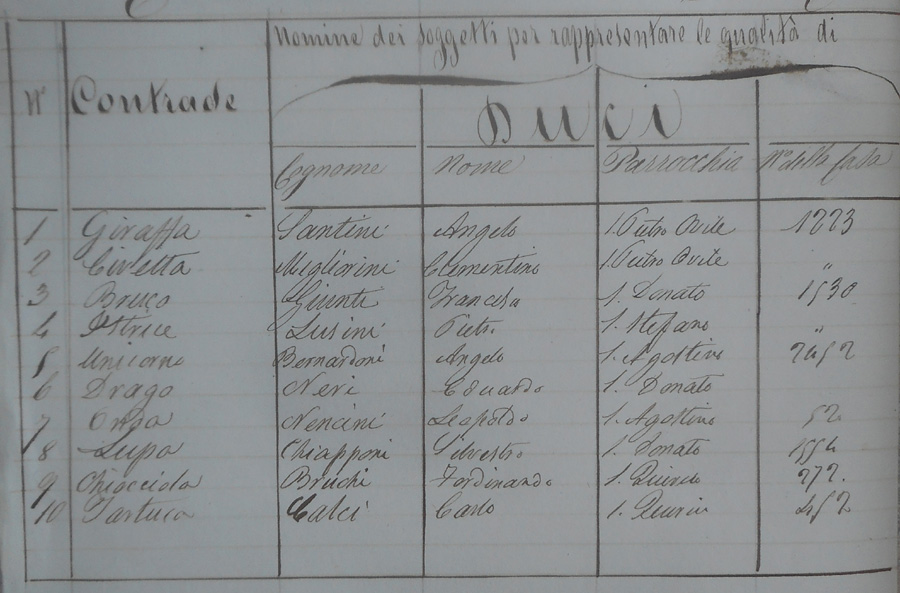 Nomine dei soggetti per rappresentare le qualità di
Nº Contrade
Duci
Cognome Nome Parrocchia Nº della Casa
1 Giraffa Santini Angelo S. Pietro Ovile 1223
2 Civetta Migliorini Clementino S. Pietro Ovile "
3 Bruco Giunti Francesco S. Donato 1530
4 Istrice Lusini Pietro S. Stefano "
5 Unicorno Bernardoni Angelo S. Agostino
6 Drago Neri Eduardo S. Donato
7 Onda Nencini Leopoldo S. Agostino 52
8 Lupa Chiapponi Silvestro S. Donato
9 Chiocciola Bruchi Ferdinando S. Quirico 272.
10 Tartuca Calci Carlo S. Quirico